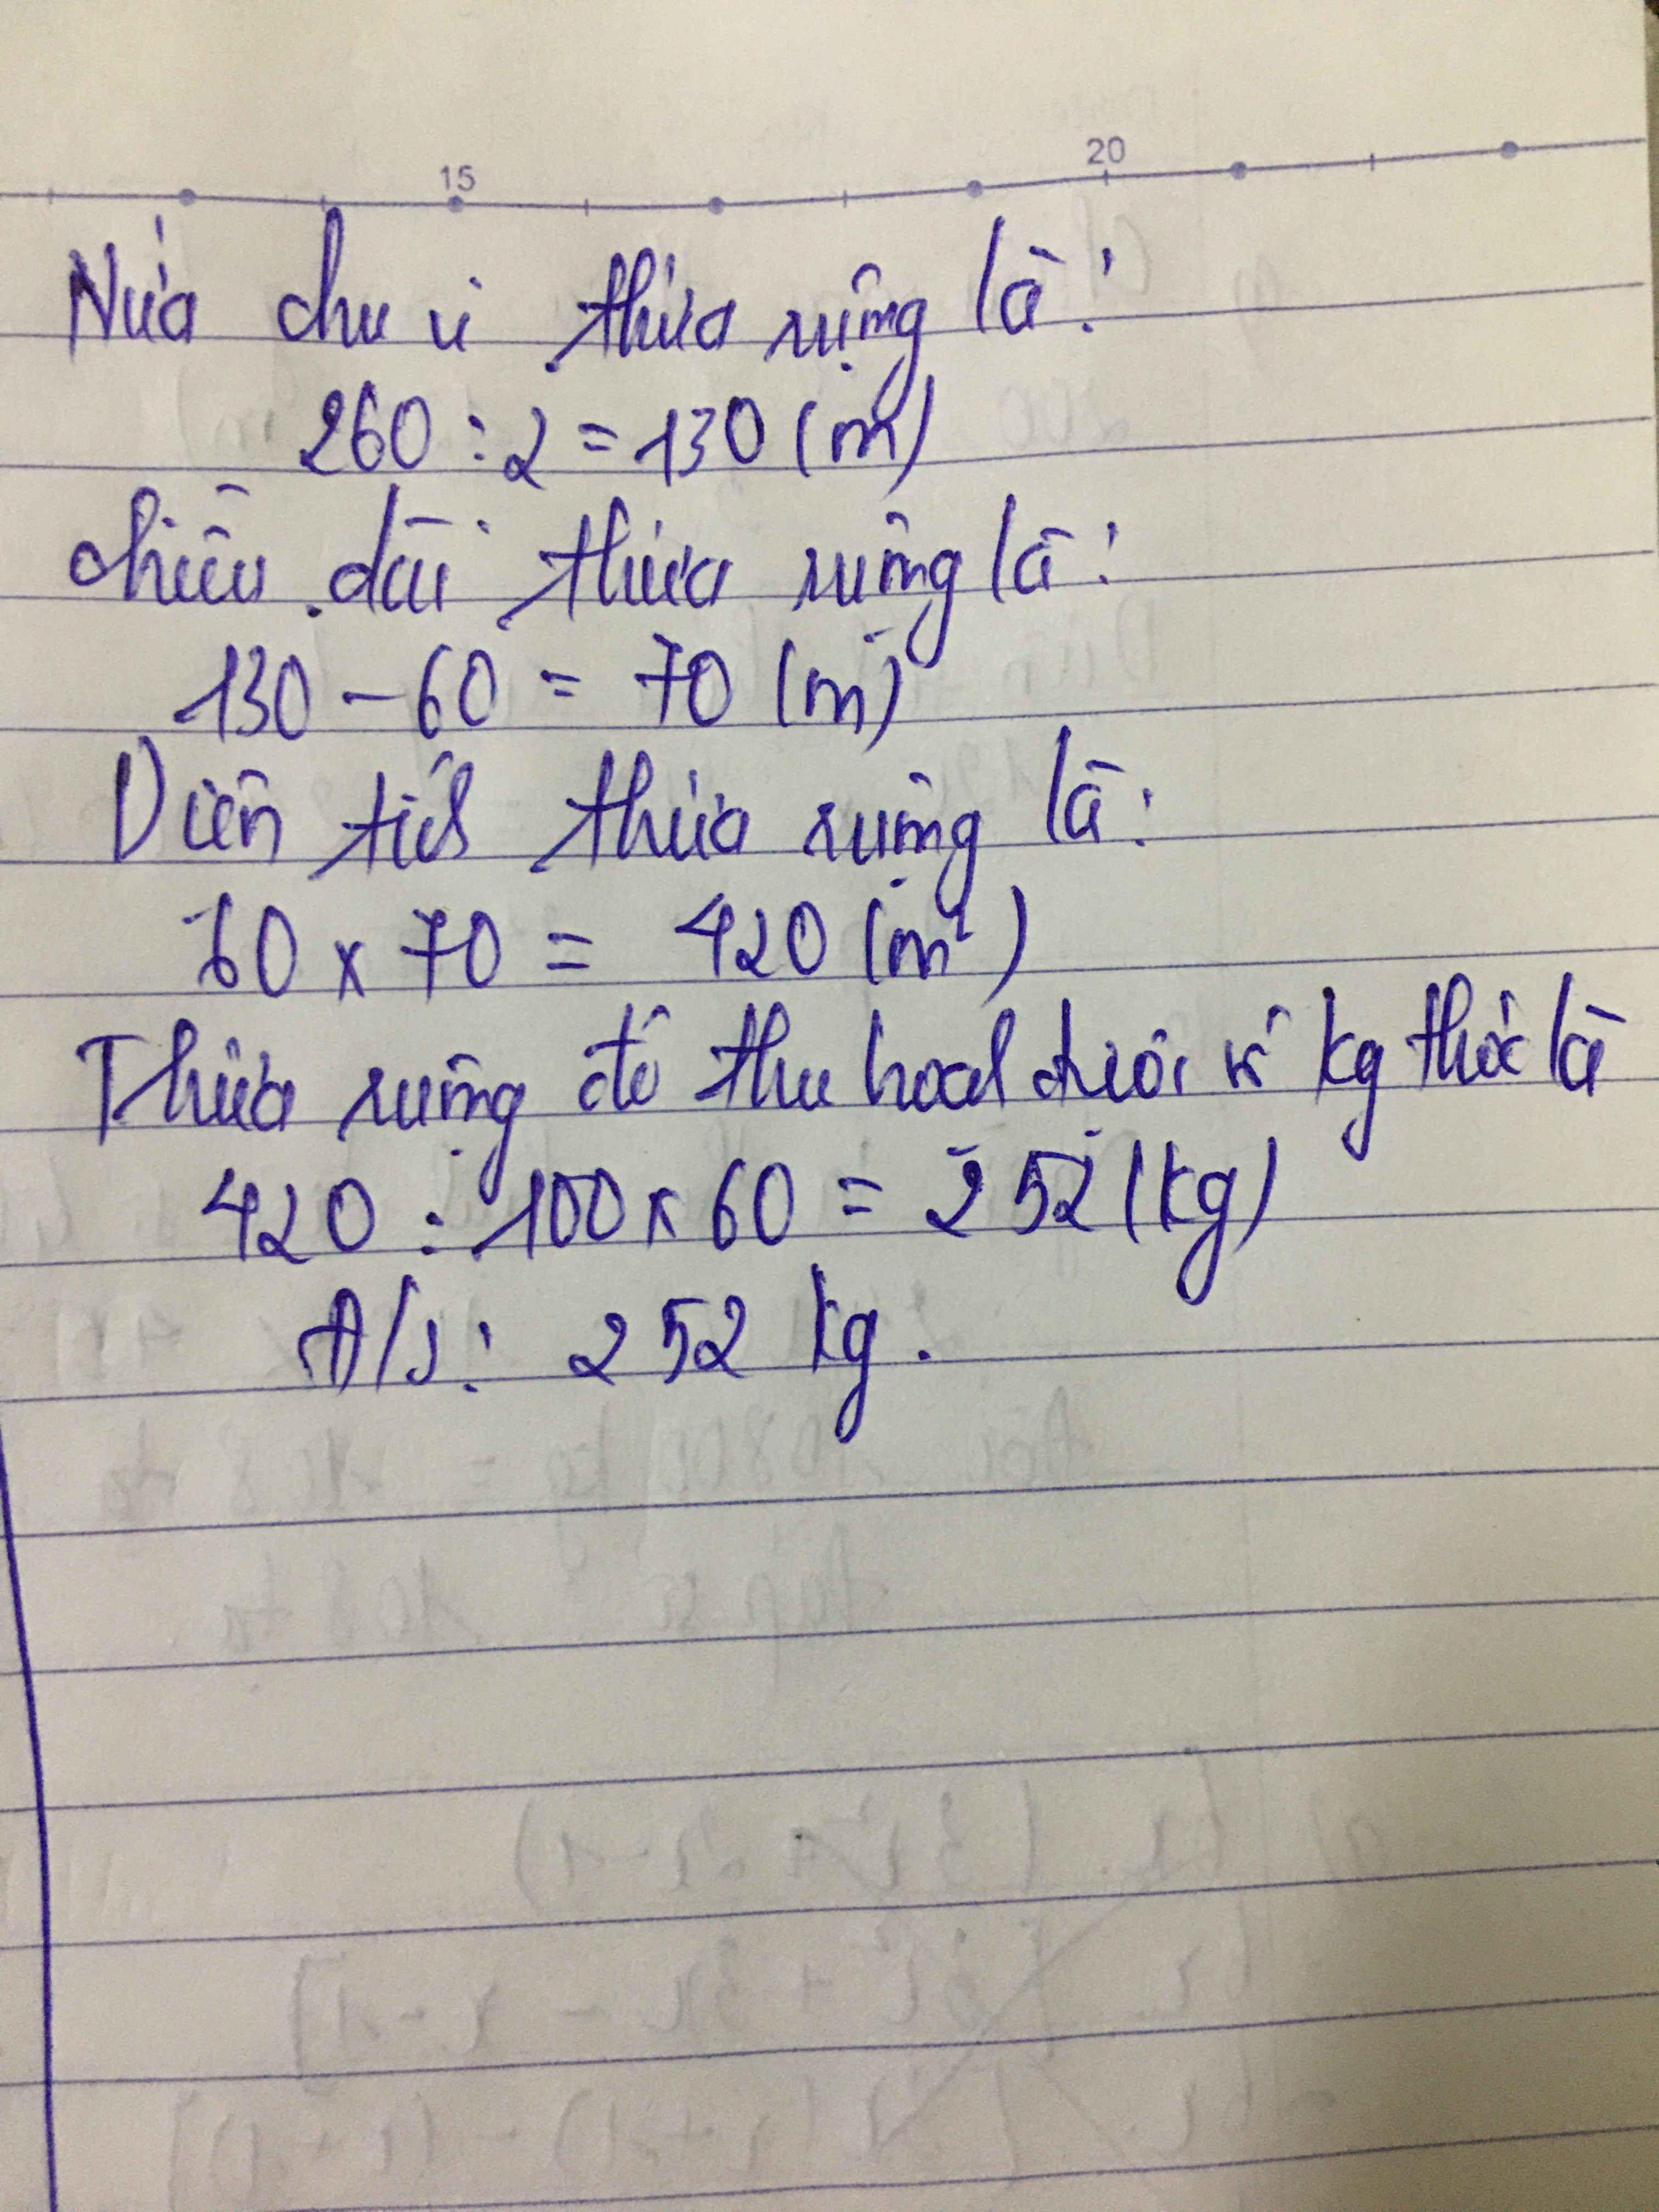 15 20
Nửa chu vi thửa ruộng là:
260 : 2 = 130 (m)
chiều dài thửa ruộng là:
130 - 60 = 70 (m)
Diện tích thửa ruộng là:
60 x 70 = 420 (m²)
Thửa ruộng đó thu hoạch được số kg thóc là
420 : 100 x 60 = 252 (kg)
Đ/s: 252 kg.